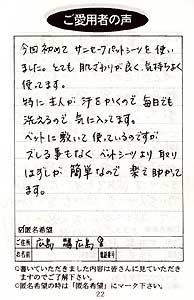 ご愛用者の声
今回初めて サンセーフパットシーツを使い
ました。とても 肌ざわりが良く、気持ちよく
使ってます。
特に主人が 汗をかくので毎日でも
洗えるので 気に入ってます。
ベットに敷いて使っているのですが
ズレる事もなく ベットシーツより取り
はずしが 簡単なので 楽で助かって
ます。
匿名希望
ご住所 広島県広島
お名前 電話番号
○書いていただきました内容は皆さんに見ていただき
ますのでご了解下さい。
○匿名希望の時は「匿名希望」にマーク下さい。
22